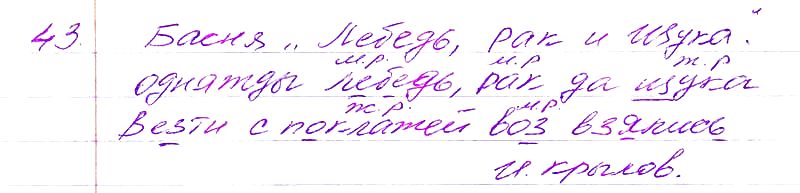 43. Басня „Лебедь, рак и Щука".
м.р. м.р. ж.р
однажды лебедь, рак да щука
ж.р. м.р
Везти с поклажей воз взялись
И. Крылов.